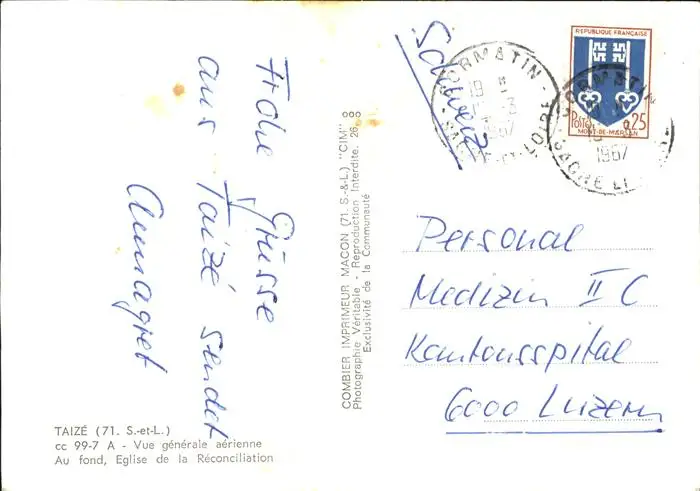 Frohe Grüsse
aus Taizé sendet
Annagret
TAIZÉ (71. S.-et-L.)
cc 99-7 A - Vue générale aérienne
Au fond, Eglise de la Réconciliation
COMBIER IMPRIMEUR MACON (71. S.-&-L.) "CIM"
Photographie Véritable - Reproduction Interdite. 26
Exclusivité de la Communauté
Schweiz
CORMATIN
19
1967
REPUBLIQUE FRANÇAISE
POSTES 0,25
MONT-DE-MARSAN
CORMATIN
1967
Personal
Medizin II C
Kantonsspital
6000 Luzern